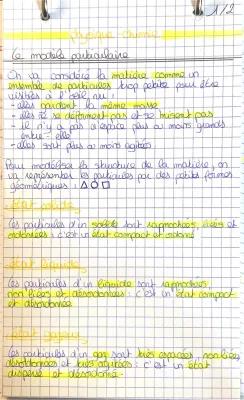 1/2
Physique chimie
Le modèle particulaire
On va considérer la matière comme un
ensemble de particules trop petite pour être
visibles à l'œil nu :
- elles gardent la même masse
- elles ne se déforment pas et se
- il n'y a pas d'espace plus ou moins grands
entre elle
- elles sont plus ou moins agitées
Pour modéliser la structure de la matière, on
va représenter les particules par des petites formes
géométriques : △ ○ □
Etat solide
Les particules d'un solide sont rapprochées, liées et
ordonnées : c'est un état compact et ordonné
Etat liquide
Les particules d'un liquide sont rapprochées,
non liées et désordonnées : c'est un état compact
et désordonné
Etat gazeux
Les particules d'un gaz sont très espacées, non liées,
désordonnées et très agitées : c'est un état
dispersé et désordonné.